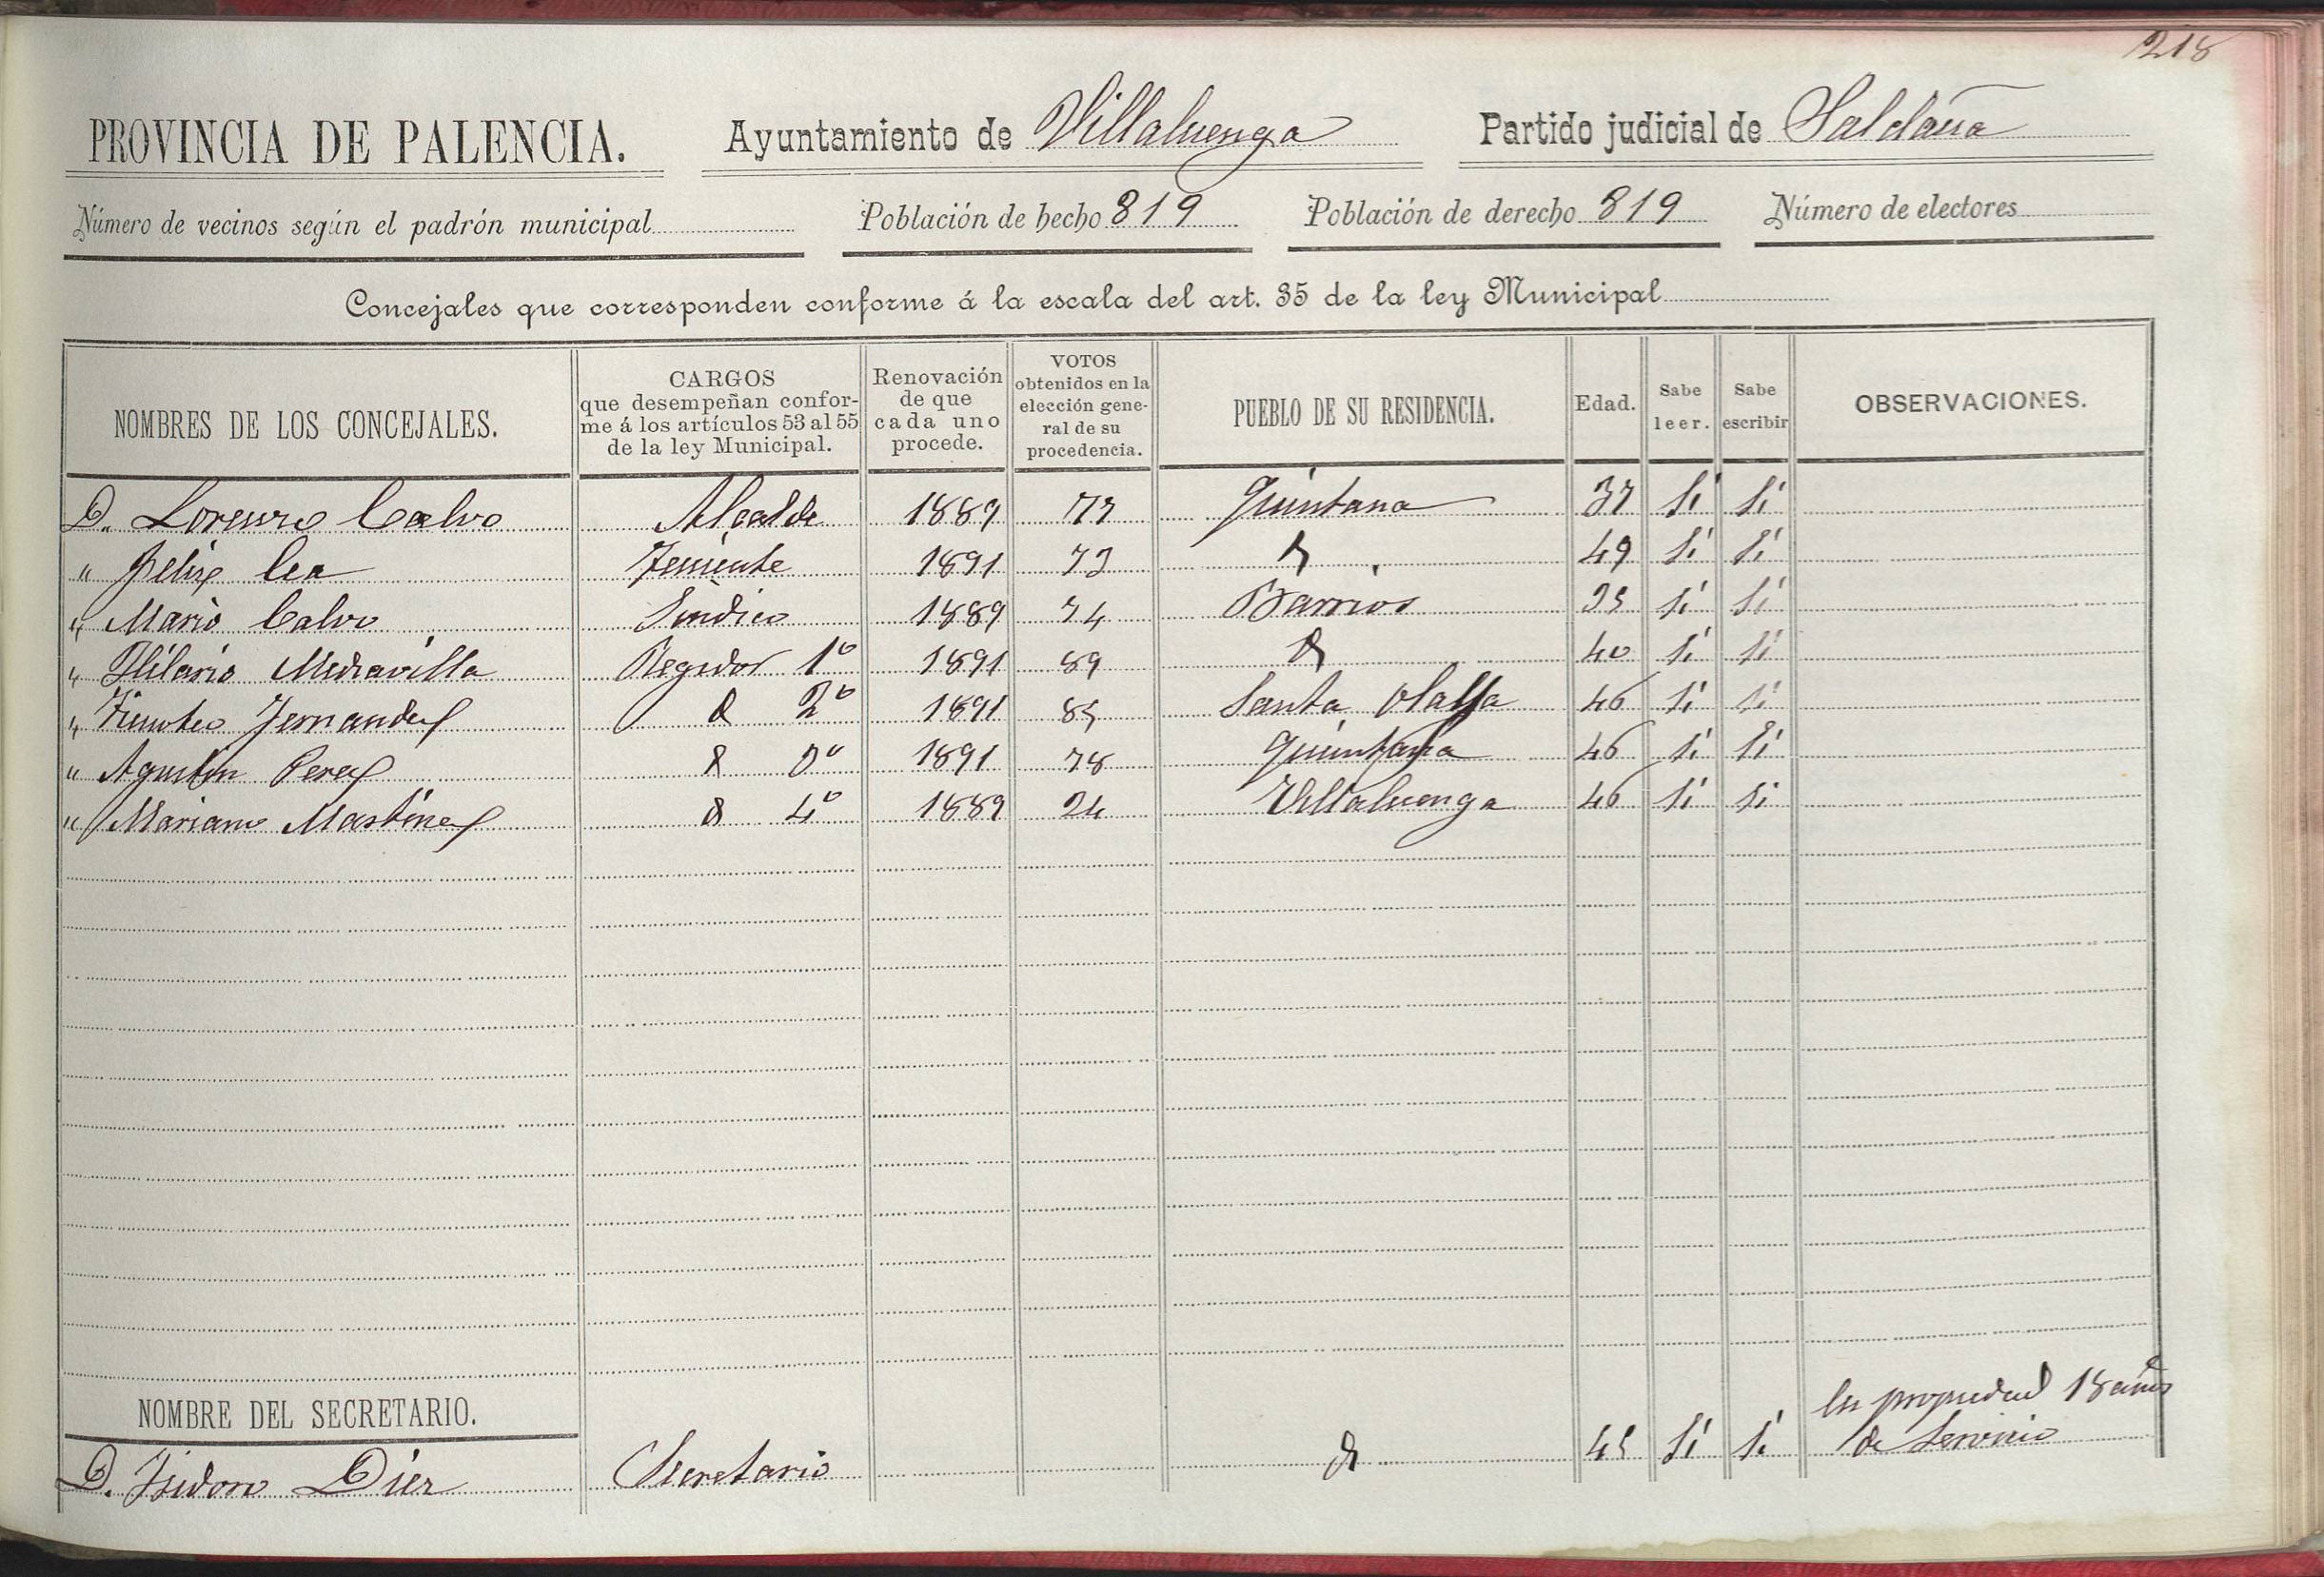 218
PROVINCIA DE PALENCIA. Ayuntamiento de Villaluenga Partido judicial de Saldaña
Número de vecinos según el padrón municipal Población de hecho 819 Población de derecho 819 Número de electores
Concejales que corresponden conforme á la escala del art. 35 de la ley Municipal
NOMBRES DE LOS CONCEJALES.
CARGOS
que desempeñan confor-
me á los artículos 53 al 55
de la ley Municipal.
Renovación
de que
cada uno
procede.
VOTOS
obtenidos en la
elección gene-
ral de su
procedencia.
PUEBLO DE SU RESIDENCIA.
Edad.
Sabe
leer.
Sabe
escribir
OBSERVACIONES.
D. Lorenzo Calvo Alcalde 1889 Quintana 37 Sí Sí
" Felix Cea Teniente 1891 73 49 Sí Sí
" Mario Calvo Sindico 1889 74 Barrios Sí Sí
" Hilario Mediavilla Regidor 1º 1891 89 40 Sí Sí
" Timoteo Fernandez 2º 1891 85 Santa Olalla 46 Sí Sí
" Agustin Perez 3º 1891 78 Quintana 46 Sí Sí
" Mariano Martinez 4º 1889 24 Villaluenga 46 Sí Sí
NOMBRE DEL SECRETARIO.
D. Isidoro Diez Secretario 45 Sí Sí En propiedad 18 años
de Servicio